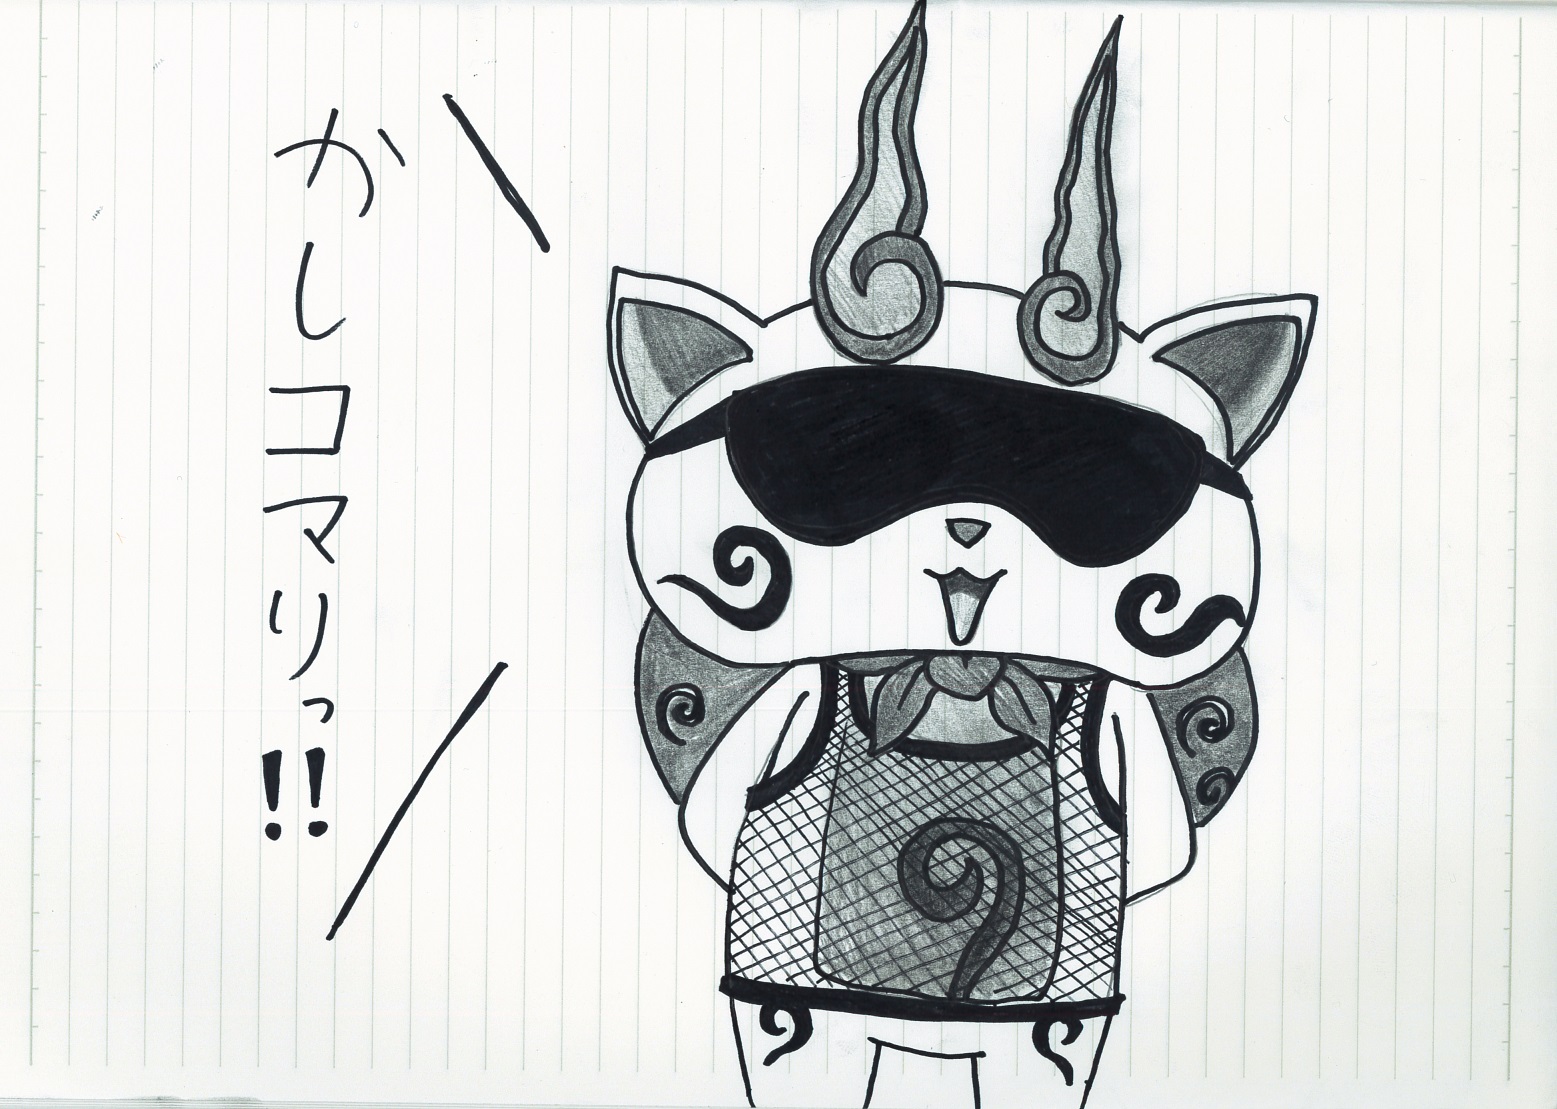 かしコマりっ!!